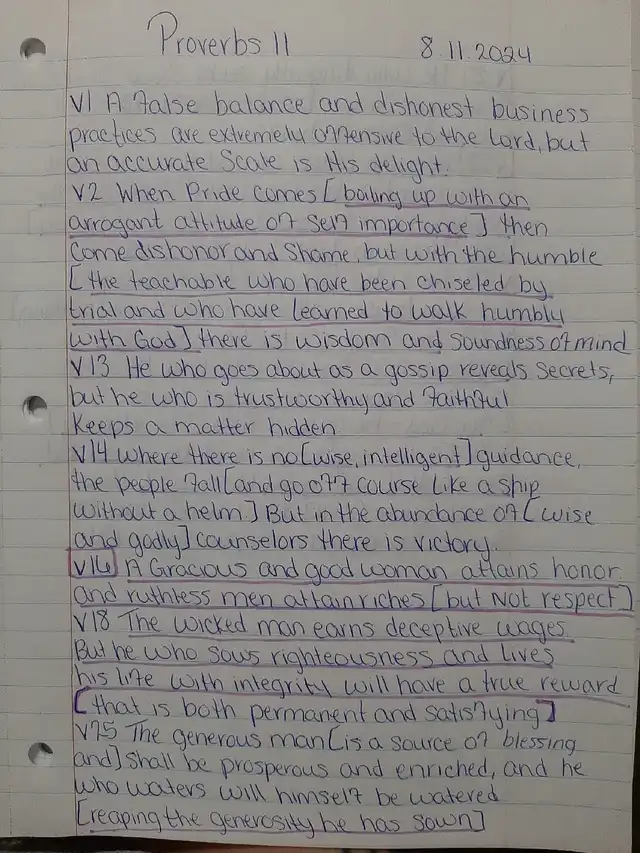 Proverbs 11 8.11.2024
V1 A false balance and dishonest business
practices are extremely offensive to the Lord, but
an accurate Scale is His delight.
V2 When Pride comes [boiling up with an
arrogant attitude of self importance] then
come dishonor and Shame, but with the humble
[the teachable who have been chiseled by
trial and who have learned to walk humbly
with God] there is wisdom and soundness of mind
V13 He who goes about as a gossip reveals secrets,
but he who is trustworthy and faithful
Keeps a matter hidden
V14 Where there is no [wise, intelligent] guidance,
the people fall [and go off course like a ship
without a helm.] But in the abundance of [wise
and godly] counselors there is victory.
V16 A Gracious and good woman attains honor
and ruthless men attain riches [but not respect]
V18 The wicked man earns deceptive wages
But he who sows righteousness and lives
his life with integrity will have a true reward
[that is both permanent and satisfying]
V25 The generous man [is a source of blessing
and] shall be prosperous and enriched, and he
who waters will himself be watered
[reaping the generosity he has sown]